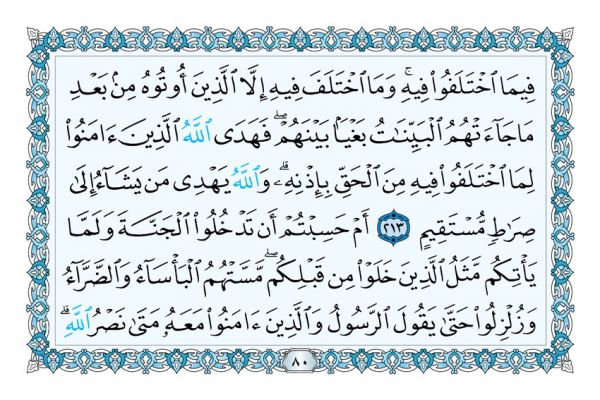 فِيمَا ٱخْتَلَفُوا۟ فِيهِ ۚ وَمَا ٱخْتَلَفَ فِيهِ إِلَّا ٱلَّذِينَ أُوتُوهُ مِنۢ بَعْدِ
مَا جَآءَتْهُمُ ٱلْبَيِّنَـٰتُ بَغْيًۢا بَيْنَهُمْ ۖ فَهَدَى ٱللَّهُ ٱلَّذِينَ ءَامَنُوا۟
لِمَا ٱخْتَلَفُوا۟ فِيهِ مِنَ ٱلْحَقِّ بِإِذْنِهِۦ ۗ وَٱللَّهُ يَهْدِى مَن يَشَآءُ إِلَىٰ
صِرَٰطٍ مُّسْتَقِيمٍ ٢١٣ أَمْ حَسِبْتُمْ أَن تَدْخُلُوا۟ ٱلْجَنَّةَ وَلَمَّا
يَأْتِكُم مَّثَلُ ٱلَّذِينَ خَلَوْا۟ مِن قَبْلِكُم ۖ مَّسَّتْهُمُ ٱلْبَأْسَآءُ وَٱلضَّرَّآءُ
وَزُلْزِلُوا۟ حَتَّىٰ يَقُولَ ٱلرَّسُولُ وَٱلَّذِينَ ءَامَنُوا۟ مَعَهُۥ مَتَىٰ نَصْرُ ٱللَّهِ ۗ
٨٠